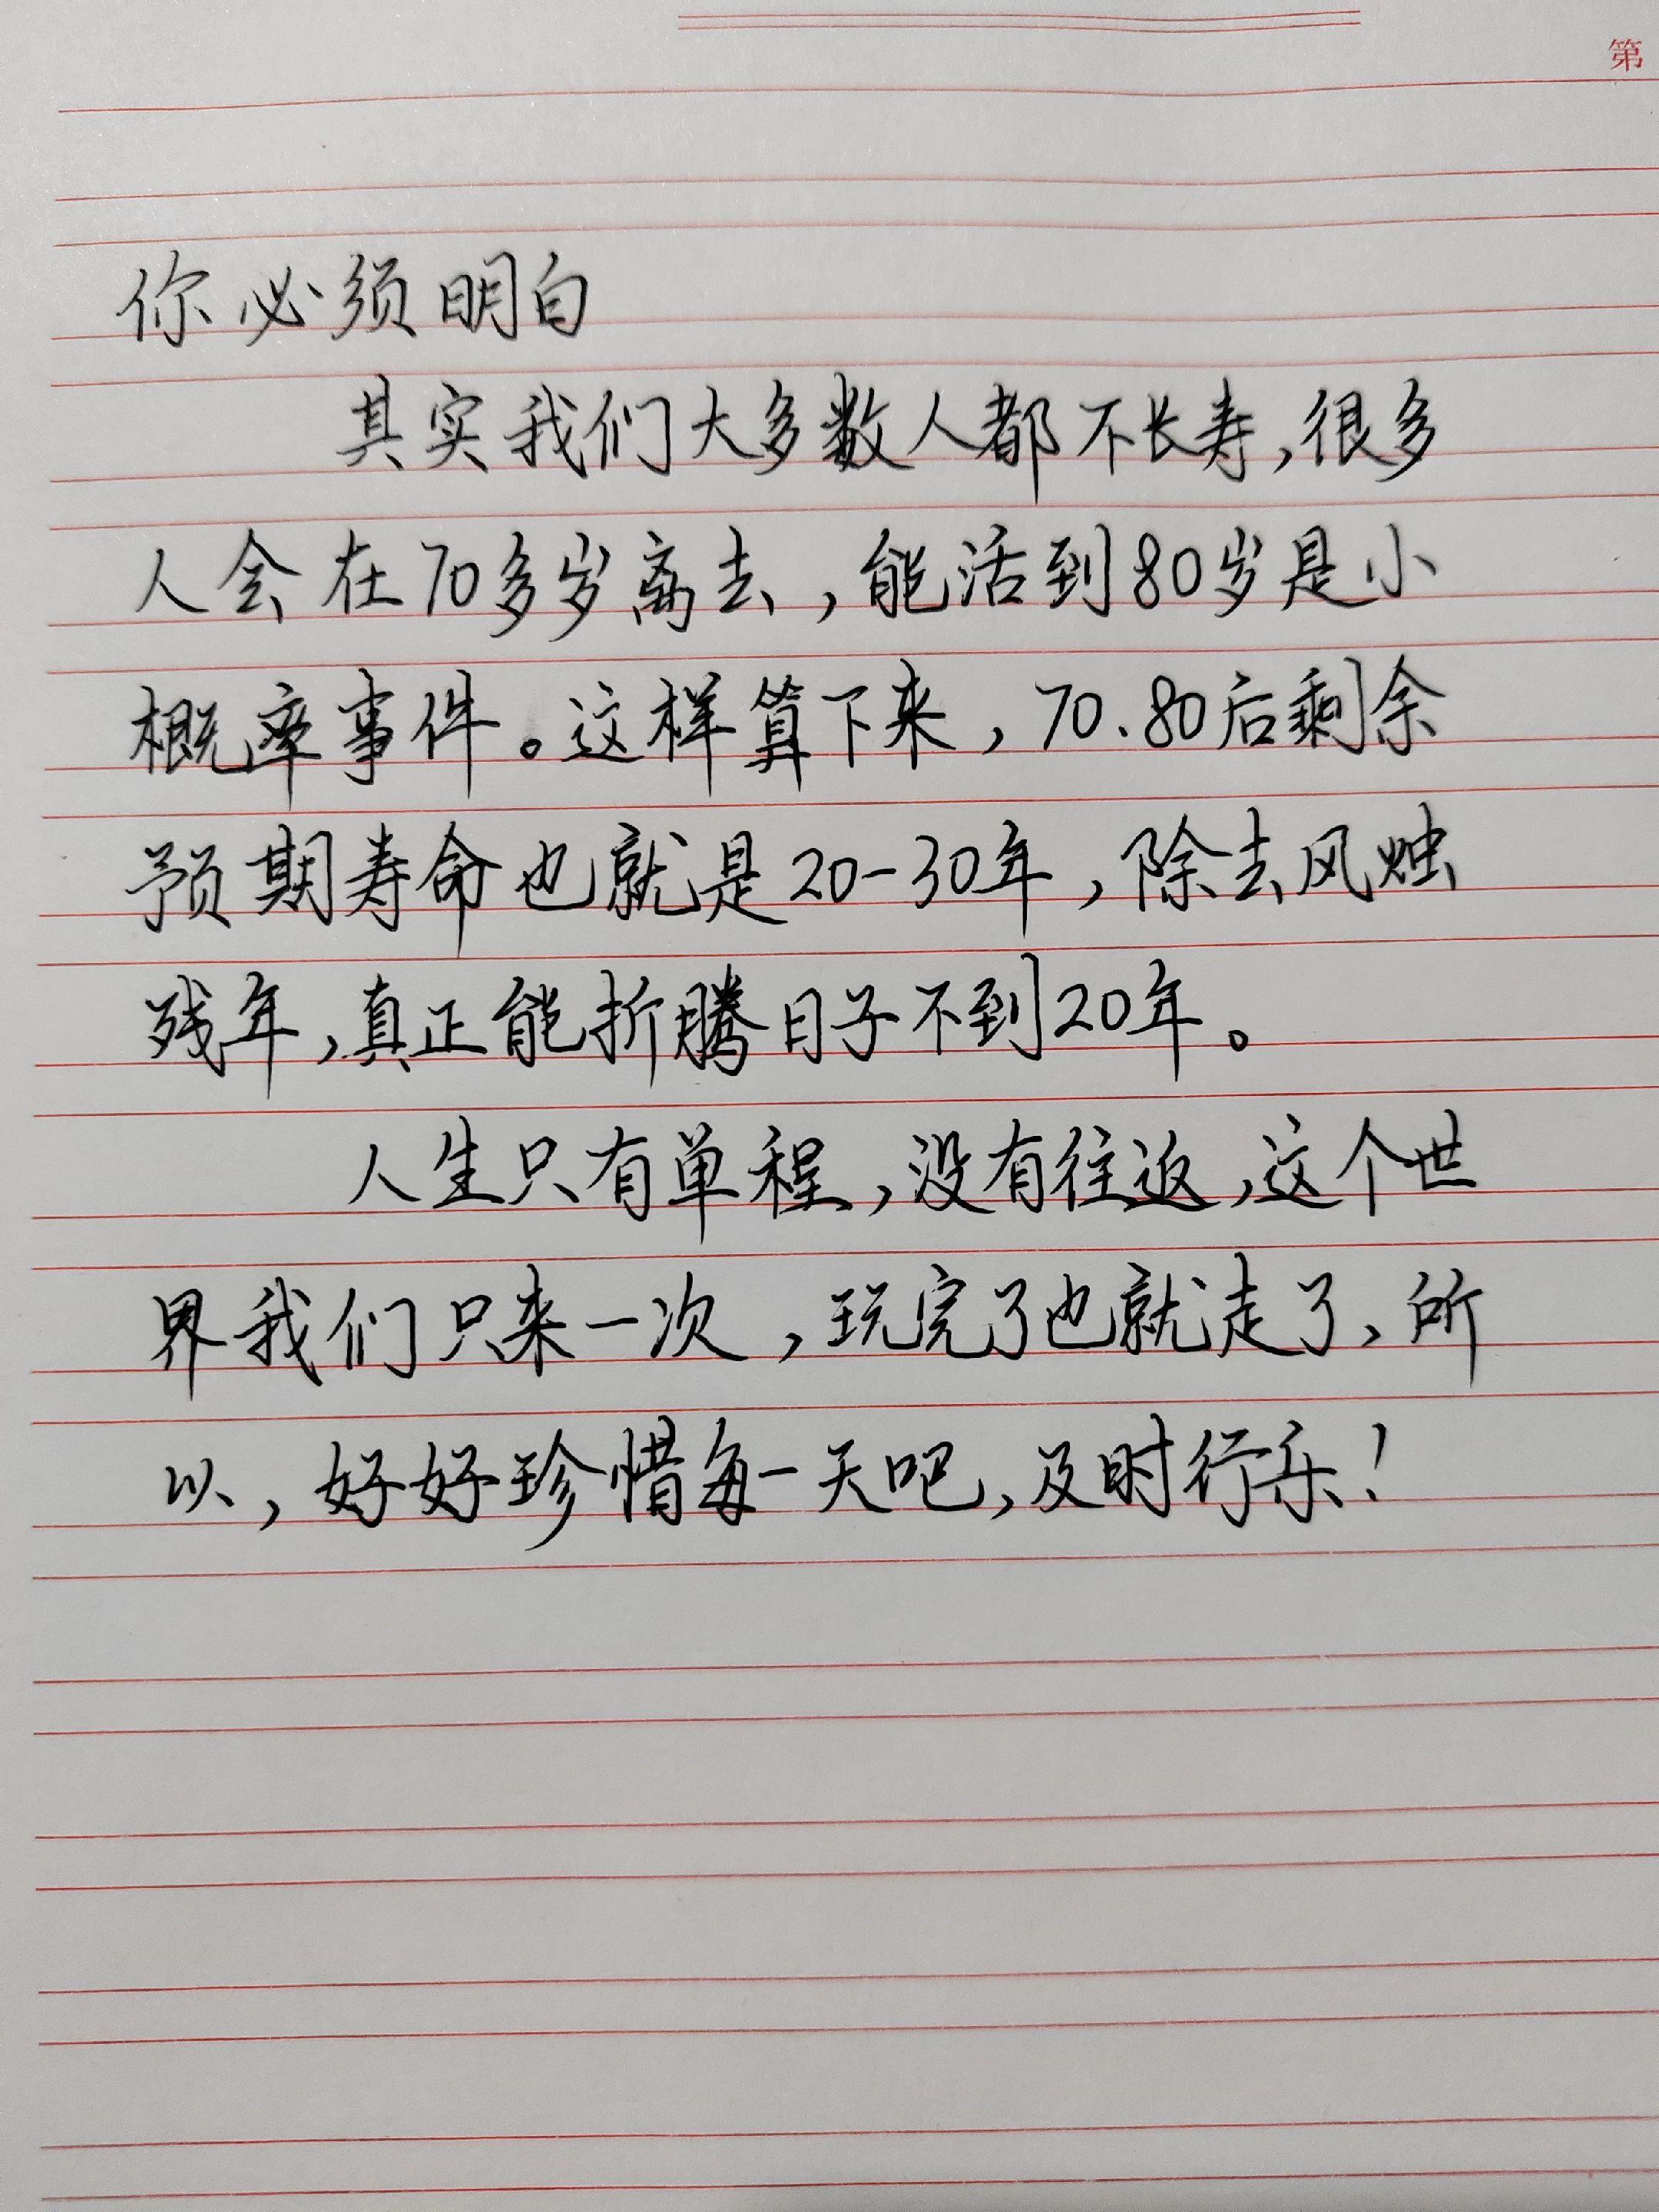 第
你必须明白
其实我们大多数人都不长寿,很多
人会在70多岁离去,能活到80岁是小
概率事件。这样算下来,70.80后剩余
预期寿命也就是20-30年,除去风烛
残年,真正能折腾日子不到20年。
人生只有单程,没有往返,这个世
界我们只来一次,玩完了也就走了、所
以,好好珍惜每一天吧,及时行乐!